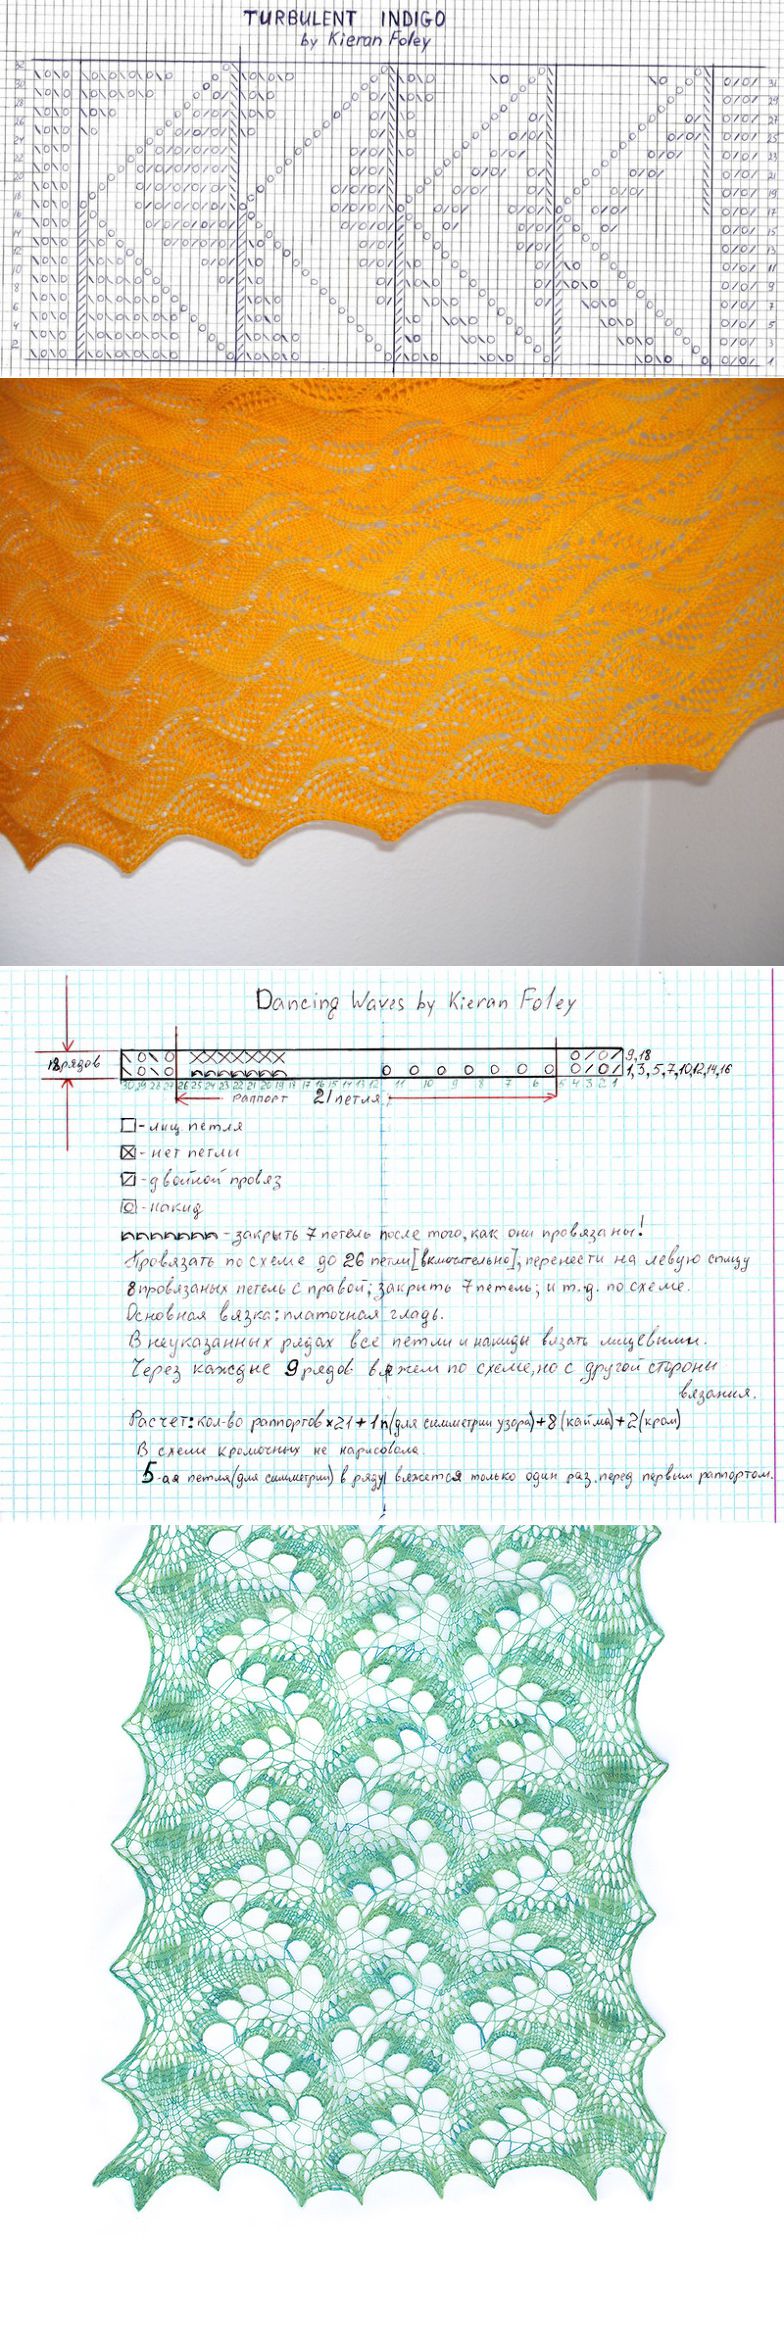 TURBULENT INDIGO
by Kieran Foley
Dancing Waves by Kieran Foley
18 рядов
9,18
1,3,5,7,10,12,14,16
30 29 28 27 26 25 24 23 22 21 20 19 18 17 16 15 14 13 12 11 10 9 8 7 6 5 4 3 2 1
раппорт 21 петля
- лиц петля
- нет петли
- двойной провяз
- накид
- закрыть 7 петель после того, как они провязаны!
Провязать по схеме до 26 петли [включительно], перенести на левую спицу
8 провязаных петель с правой; закрыть 7 петель; и т.д. по схеме.
Основная вязка: платочная гладь.
В неуказанных рядах все петли и накиды вязать лицевыми.
Через каждые 9 рядов вяжем по схеме, но с другой стороны
вязания.
Расчет: кол-во раппортов x 21 + 1п (для симметрии узора) + 8 (кайма) + 2 (кром)
В схеме кромочных не нарисовала.
5-ая петля (для симметрии) в ряду вяжется только один раз, перед первым раппортом.